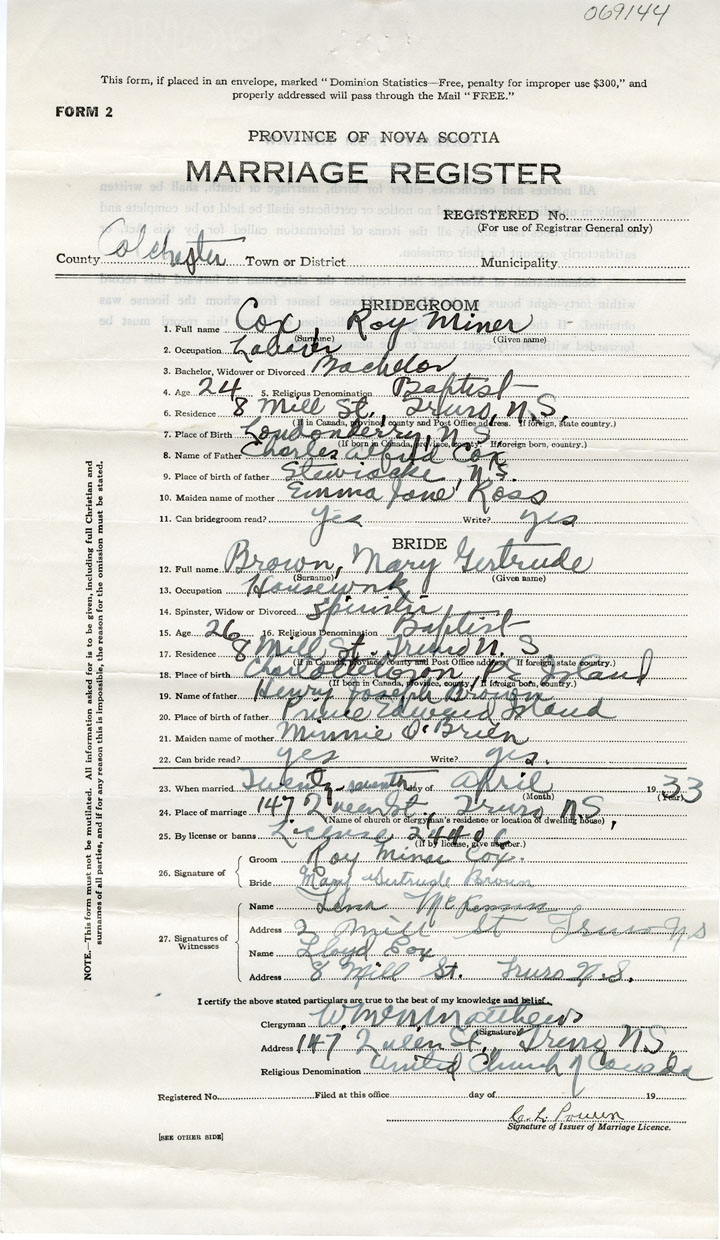 069144
This form, if placed in an envelope, marked "Dominion Statistics—Free, penalty for improper use $300," and
properly addressed will pass through the Mail "FREE."
FORM 2
PROVINCE OF NOVA SCOTIA
MARRIAGE REGISTER
REGISTERED No.
(For use of Registrar General only)
County Colchester Town or District Municipality
BRIDEGROOM
1. Full name Cox, Roy Miner
(Surname) (Given name)
2. Occupation Laborer
3. Bachelor, Widower or Divorced Bachelor
4. Age 24 5. Religious Denomination Baptist
6. Residence 8 Mill St., Truro, N.S.
(If in Canada, province, county and Post Office address. If foreign, state country.)
7. Place of Birth Londonderry, N.S.
(If born in Canada, province, county. If foreign born, country.)
8. Name of Father Charles Alfred Cox
9. Place of birth of father Stewiacke, N.S.
10. Maiden name of mother Emma Jane Ross
11. Can bridegroom read? yes Write? yes
BRIDE
12. Full name Brown, Mary Gertrude
(Surname) (Given name)
13. Occupation Housework
14. Spinster, Widow or Divorced Spinster
15. Age 26 16. Religious Denomination Baptist
17. Residence 8 Mill St. Truro N.S
(If in Canada, province, county and Post Office address. If foreign state country.)
18. Place of birth Charlottetown, P E Island
(If born in Canada, province, county. If foreign born, country.)
19. Name of father Henry Joseph Brown
20. Place of birth of father Prince Edward Island
21. Maiden name of mother Minnie O'Brien
22. Can bride read? yes Write? yes.
23. When married Twenty-seventh day of April 1933
(Month) (Year)
24. Place of marriage 147 Queen St., Truro N.S.,
(Name of church or clergyman's residence or location of dwelling house)
25. By license or banns License
(If by license, give number.)
26. Signature of
Groom Roy Miner Cox.
Bride Mary Gertrude Brown
27. Signatures of Witnesses
Name Lena
Address 2 Mill St Truro N.S
Name Lloyd Cox
Address 8 Mill St. Truro N.S.
I certify the above stated particulars are true to the best of my knowledge and belief.
Clergyman Matthews
(Signature)
Address 147 Queen St., Truro N.S.
Religious Denomination United Church of Canada
Registered No. Filed at this office day of 19
C. L.
Signature of Issuer of Marriage Licence.
[SEE OTHER SIDE]
NOTE.—This form must not be mutilated. All information asked for is to be given, including full Christian and
surnames of all parties, and if for any reason this is impossible, the reason for the omission must be stated.